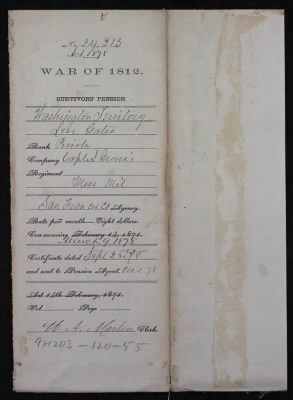 No 24313
Act, 1878
WAR OF 1812.
SURVIVORS PENSION.
Washington Territory
Levi
Rank Private
Company Capt. S.
Regiment
Mass Mil
San Francisco Agency.
Rate per month Eight dollars.
Commencing February 14, 1871.
March 9 1878
Certificate dated Sept 25 78
and sent to Pension Agent. Oct 2 78
Act 14th February, 1871.
Vol. Page
W. A. Clerk.
94203-120-55